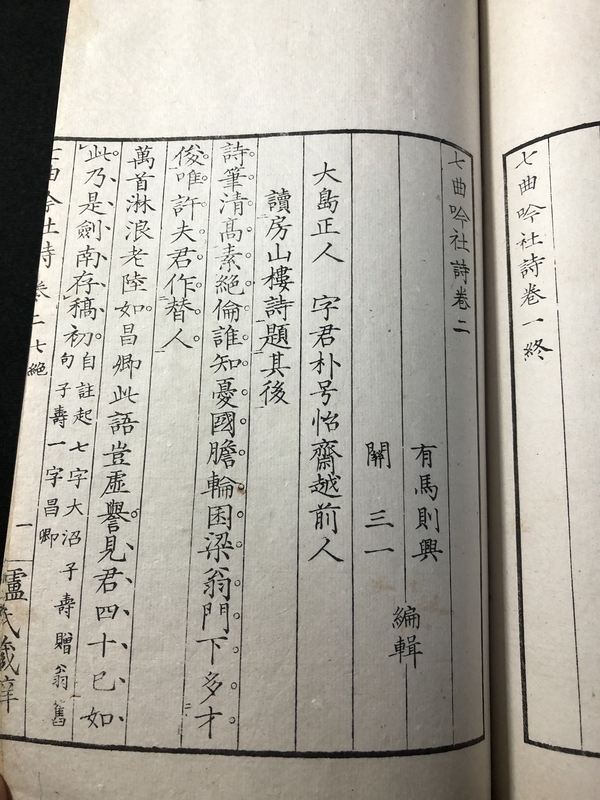 七曲吟社詩卷一終
七曲吟社詩卷二
有馬則興
關三一
編輯
大島正人 字君朴号怡齋越前人
讀房山樓詩題其後
詩筆清高素絕倫誰知憂國膽輪囷梁翁門下多才
俊唯許夫君作替人
萬首淋浪老陸如昌卿此語豈虛譽見君四十已如
此乃是劍南存稿初自註起七字大沼子壽贈翁舊
句子壽一字昌卿
七曲吟社詩 卷二 七絕 一